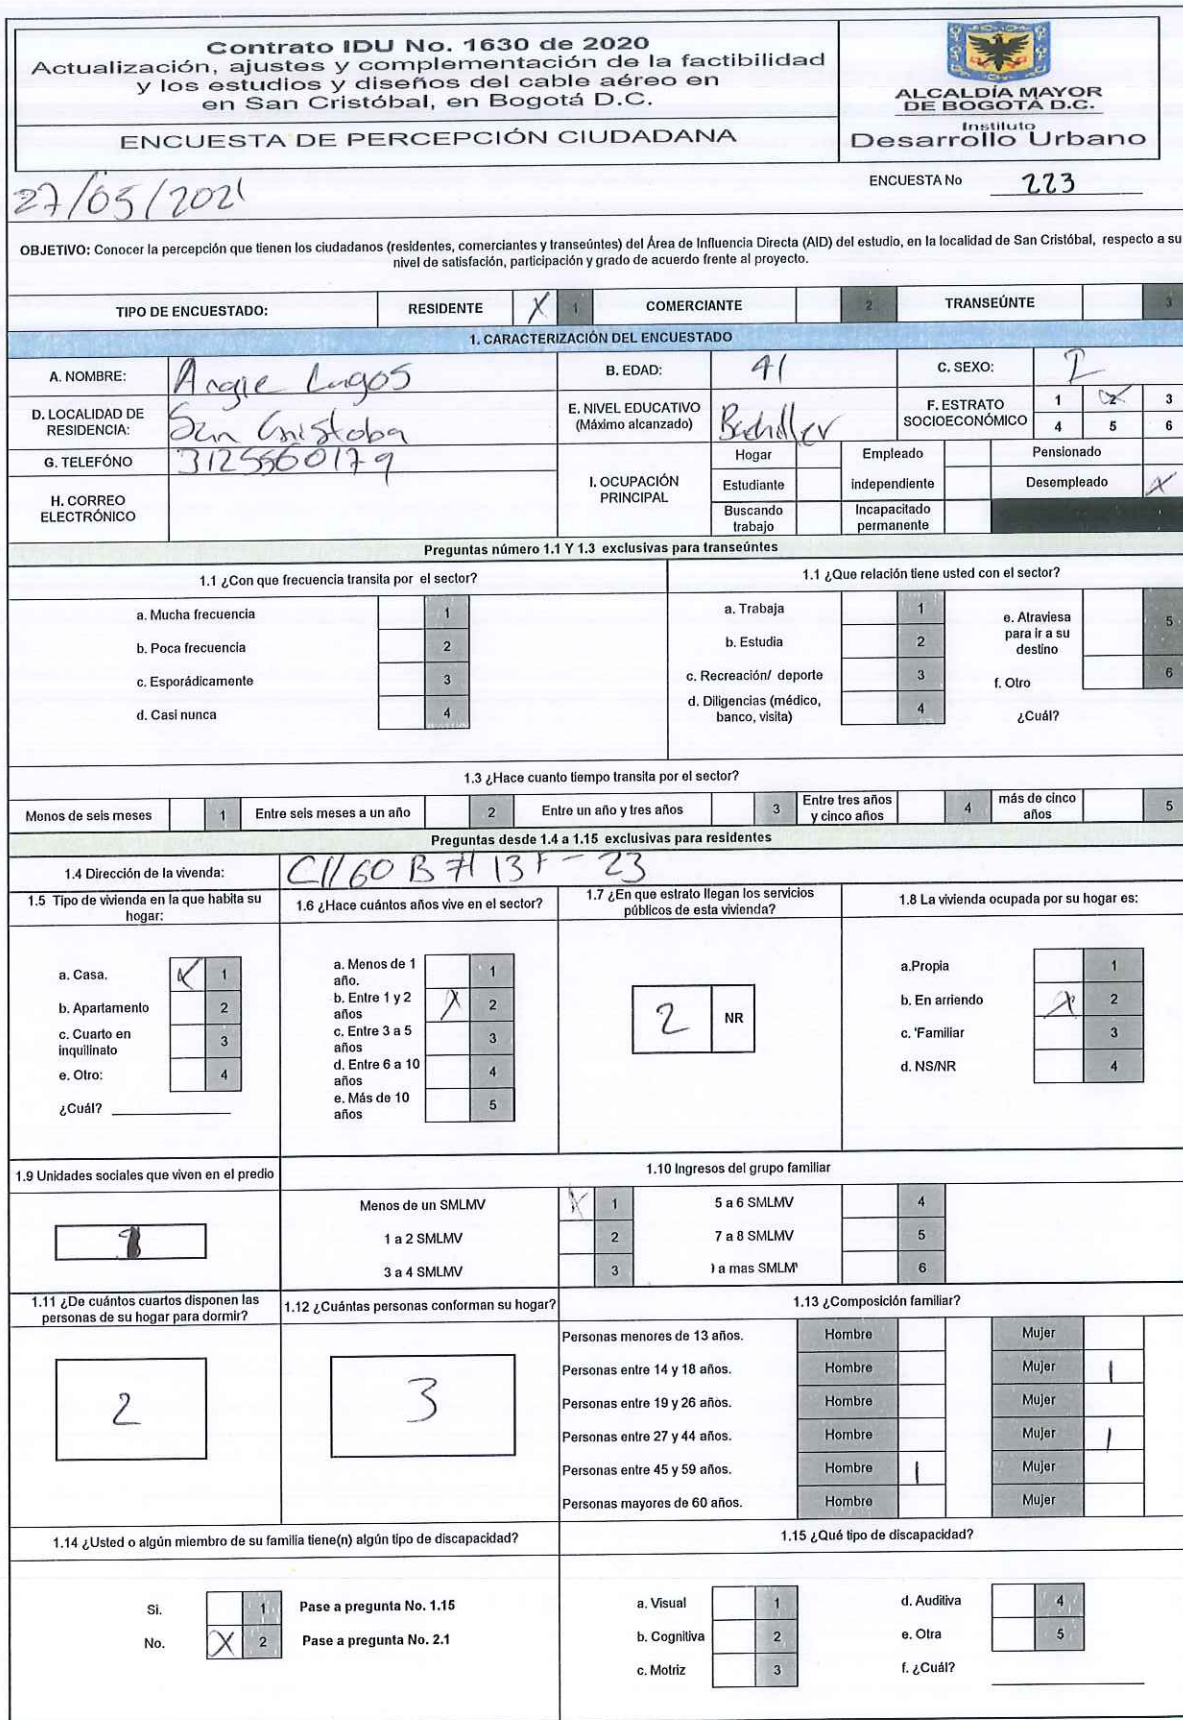 Contrato IDU No. 1630 de 2020
Actualización, ajustes y complementación de la factibilidad
y los estudios y diseños del cable aéreo en
en San Cristóbal, en Bogotá D.C.
ENCUESTA DE PERCEPCIÓN CIUDADANA
ALCALDÍA MAYOR
DE BOGOTÁ D.C.
Instituto
Desarrollo Urbano
27/05/2021
ENCUESTA No 223
OBJETIVO: Conocer la percepción que tienen los ciudadanos (residentes, comerciantes y transeúntes) del Área de Influencia Directa (AID) del estudio, en la localidad de San Cristóbal, respecto a su
nivel de satisfacción, participación y grado de acuerdo frente al proyecto.
TIPO DE ENCUESTADO: RESIDENTE X 1 COMERCIANTE 2 TRANSEÚNTE 3
1. CARACTERIZACIÓN DEL ENCUESTADO
A. NOMBRE: Angie Lugos B. EDAD: 41 C. SEXO:
D. LOCALIDAD DE RESIDENCIA: San Cristoba E. NIVEL EDUCATIVO (Máximo alcanzado) Bachiller F. ESTRATO SOCIOECONÓMICO 1 2 3
4 5 6
G. TELEFÓNO 3125560179
H. CORREO ELECTRÓNICO
I. OCUPACIÓN PRINCIPAL
Hogar Empleado Pensionado
Estudiante independiente Desempleado X
Buscando trabajo Incapacitado permanente
Preguntas número 1.1 Y 1.3 exclusivas para transeúntes
1.1 ¿Con que frecuencia transita por el sector?
a. Mucha frecuencia 1
b. Poca frecuencia 2
c. Esporádicamente 3
d. Casi nunca 4
1.1 ¿Que relación tiene usted con el sector?
a. Trabaja 1
b. Estudia 2
c. Recreación/ deporte 3
d. Diligencias (médico, banco, visita) 4
e. Atraviesa para ir a su destino 5
f. Otro 6
¿Cuál?
1.3 ¿Hace cuanto tiempo transita por el sector?
Menos de seis meses 1 Entre seis meses a un año 2 Entre un año y tres años 3 Entre tres años y cinco años 4 más de cinco años 5
Preguntas desde 1.4 a 1.15 exclusivas para residentes
1.4 Dirección de la vivienda: Cll 60 B # 13F - 23
1.5 Tipo de vivienda en la que habita su hogar:
a. Casa. X 1
b. Apartamento 2
c. Cuarto en inquilinato 3
e. Otro: 4
¿Cuál?
1.6 ¿Hace cuántos años vive en el sector?
a. Menos de 1 año. 1
b. Entre 1 y 2 años X 2
c. Entre 3 a 5 años 3
d. Entre 6 a 10 años 4
e. Más de 10 años 5
1.7 ¿En que estrato llegan los servicios públicos de esta vivienda?
2 NR
1.8 La vivienda ocupada por su hogar es:
a.Propia 1
b. En arriendo X 2
c. 'Familiar 3
d. NS/NR 4
1.9 Unidades sociales que viven en el predio
1.10 Ingresos del grupo familiar
Menos de un SMLMV X 1 5 a 6 SMLMV 4
1 a 2 SMLMV 2 7 a 8 SMLMV 5
3 a 4 SMLMV 3 a mas SMLM 6
1.11 ¿De cuántos cuartos disponen las personas de su hogar para dormir?
2
1.12 ¿Cuántas personas conforman su hogar?
3
1.13 ¿Composición familiar?
Personas menores de 13 años. Hombre Mujer
Personas entre 14 y 18 años. Hombre Mujer 1
Personas entre 19 y 26 años. Hombre Mujer
Personas entre 27 y 44 años. Hombre Mujer 1
Personas entre 45 y 59 años. Hombre 1 Mujer
Personas mayores de 60 años. Hombre Mujer
1.14 ¿Usted o algún miembro de su familia tiene(n) algún tipo de discapacidad?
Si. 1 Pase a pregunta No. 1.15
No. X 2 Pase a pregunta No. 2.1
1.15 ¿Qué tipo de discapacidad?
a. Visual 1 d. Auditiva 4
b. Cognitiva 2 e. Otra 5
c. Motriz 3 f. ¿Cuál?